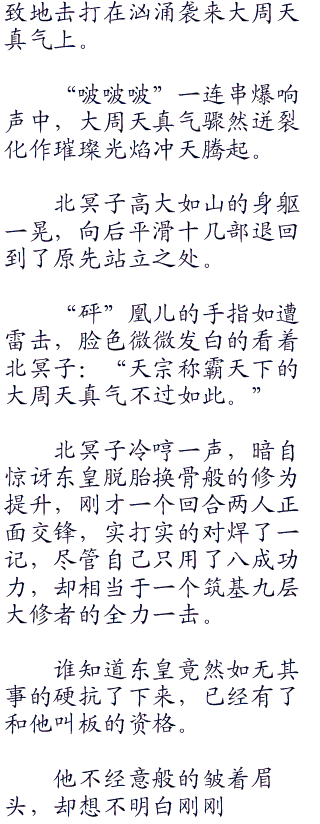 致地击打在汹涌袭来大周天
真气上。
“啵啵啵”一连串爆响
声中，大周天真气骤然迸裂
化作璀璨光焰冲天腾起。
北冥子高大如山的身躯
一晃，向后平滑十几部退回
到了原先站立之处。
“砰”凰儿的手指如遭
雷击，脸色微微发白的看着
北冥子：“天宗称霸天下的
大周天真气不过如此。”
北冥子冷哼一声，暗自
惊讶东皇脱胎换骨般的修为
提升，刚才一个回合两人正
面交锋，实打实的对焊了一
记，尽管自己只用了八成功
力，却相当于一个筑基九层
大修者的全力一击。
谁知道东皇竟然如无其
事的硬抗了下来，已经有了
和他叫板的资格。
他不经意般的皱着眉
头，却想不明白刚刚